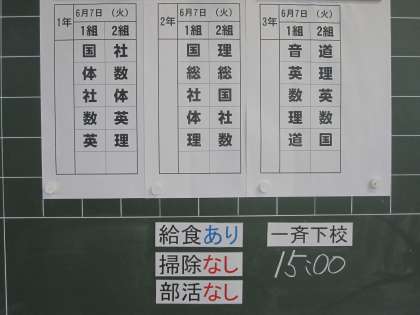 1年 6月7日 (火)
1組 2組
国 社
体 数
社 体
数 英
英 理
2年 6月7日 (火)
1組 2組
国 理
総 総
社 国
体 社
理 数
3年 6月7日 (火)
1組 2組
音 道
英 理
数 英
理 数
道 国
給食あり
掃除なし
部活なし
一斉下校
15:00